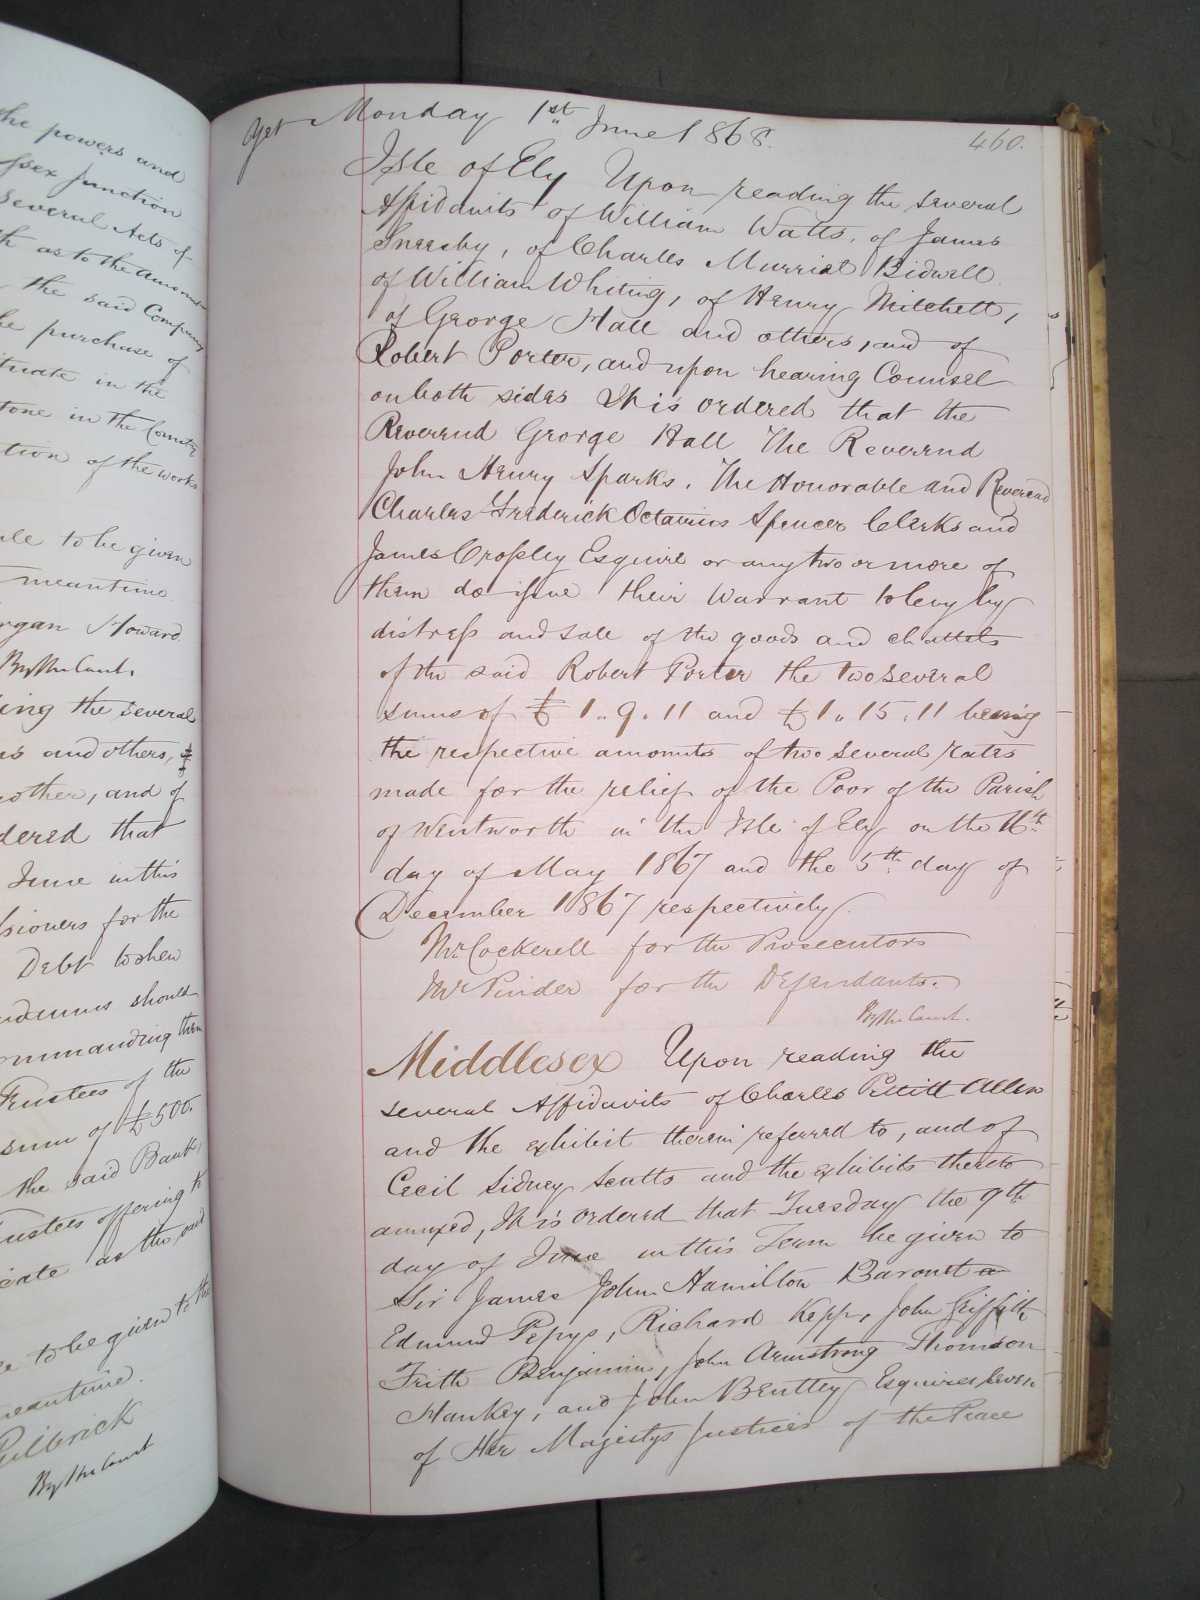 he powers and
ssex Junction
Several Acts of
th as to the amount
the said Company
he purchase of
tuate in the
tone in the County
tion of the works
ule to be given
meantime
rgan Howard
By the Court.
ing the several
and others,
other, and of
dered that
June in this
sioners for the
Debt to shew
should
ommanding them
Trustees of the
sum of £500.
the said Bank,
rustees offering to
cate as the said
to be given to the
meantime.
Philbrick
By the Court
460.
Yet Monday 1st June 1868.
Isle of Ely Upon reading the several
Affidavits of William Watts, of James
Sneesby, of Charles Murriel Bidwell
of William Whiting, of Henry Mitchell,
of George Hall and others, and of
Robert Porter, and upon hearing Counsel
on both sides It is ordered that the
Reverend George Hall The Reverend
John Henry Sparks. The Honorable and Reverend
Charles Frederick Octavius Spencer Clerks and
James Cropley Esquire or any two or more of
them do issue their Warrant to levy by
distress and sale of the goods and chattels
of the said Robert Porter the two several
sums of £1.. 9. 11 and £1.. 15. 11 being
the respective amounts of two several rates
made for the relief of the Poor of the Parish
of Wentworth in the Isle of Ely on the 16th
day of May 1867 and the 5th day of
December 1867 respectively.
Mr Cockerell for the Prosecutors
Mr Pinder for the Defendants.
By the Court.
Middlesex Upon reading the
several Affidavits of Charles Pettitt Allen
and the exhibit therein referred to, and of
Cecil Sidney Scutts and the exhibits thereto
annexed, It is ordered that Tuesday the 9th
day of June in this Term be given to
Sir James John Hamilton Baronet
Edmund Pepys, Richard Kepp, John Griffith
Frith Benjamin, John Armstrong Thomson
Hankey, and John Bentley Esquires seven
of Her Majestys Justices of the Peace